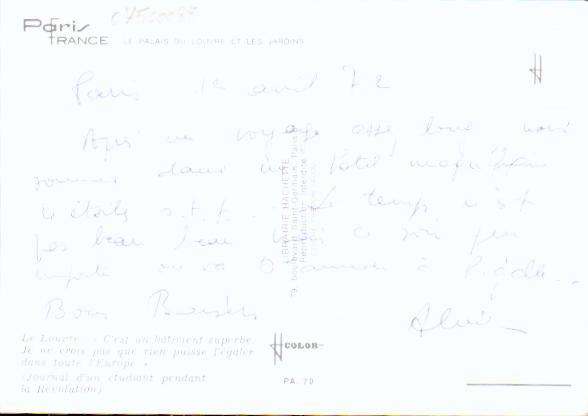 07500087
Paris
FRANCE LE PALAIS DU LOUVRE ET LES JARDINS
Paris 1er avril 72
Après un voyage assez long nous
sommes dans un hôtel magnifique
4 étoiles s.t.p. Le temps n'est
pas beau beau mais ce soir peu
importe on va s'amuser à Pigalle...
Bons Baisers
LIBRAIRIE HACHETTE
79, boulevard Saint-Germain, Paris
Reproduction interdite
Le Louvre : « C'est un bâtiment superbe.
Je ne crois pas que rien puisse l'égaler
dans toute l'Europe »
(Journal d'un étudiant pendant
la Révolution)
COLOR
PA. 79